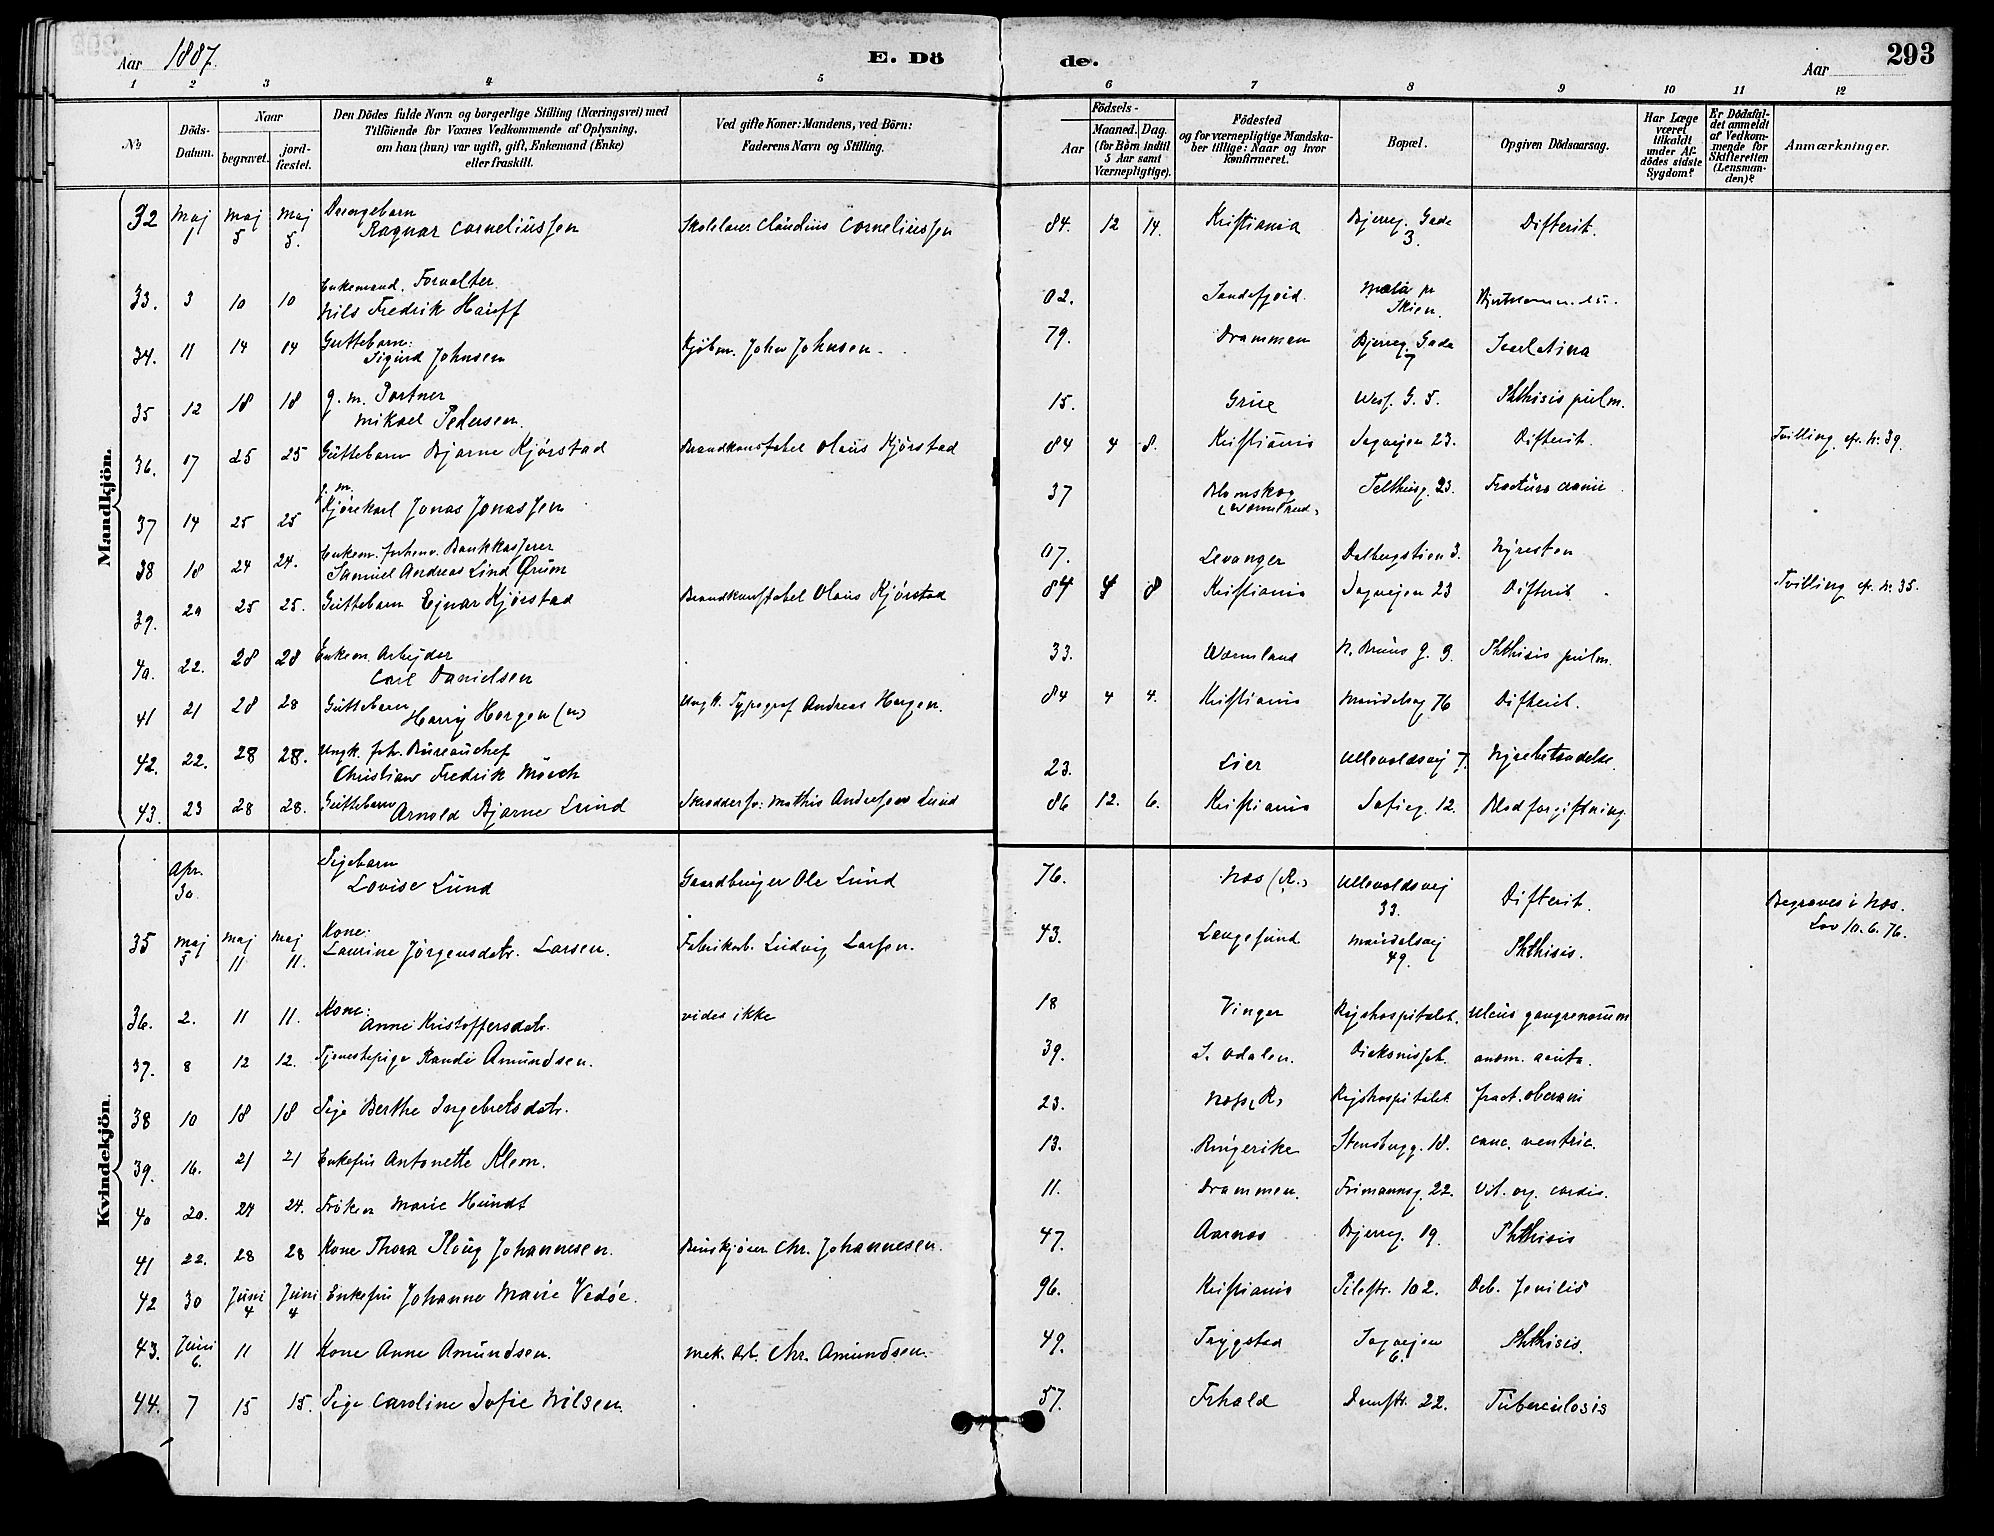 Aar 1887.
E. Dö
de.
Aar
293
1 2 3 4 5 6 7 8 9 10 11 12
No
Döds-Datum.
Naar
begravet.
jord-fæstet.
Den Dödes fulde Navn og borgerlige Stilling (Næringsvei) med
Tilföiende for Voxnes Vedkommende af Oplysning,
om han (hun) var ugift, gift, Enkemand (Enke)
eller fraskilt.
Ved gifte Koner: Mandens, ved Börn:
Faderens Navn og Stilling.
Födsels-
Aar
Maaned. Dag.
(for Börn indtil
5 Aar samt
Værnepligtige).
Födested
og for værnepligtige Mandska-
ber tillige: Naar og hvor
konfirmeret.
Bopæl.
Opgiven Dödsaarsag.
Har Læge
været
tilkaldt
under Af-
dödes sidste
Sygdom?
Er Dödsfal-
det anmeldt
af Vedkom-
mende for
Skifteretten
(Lensman-
den)?
Anmærkninger.
Mandkjön.
32 Maj 1 Maj 5 Maj 5. Drengebarn Ragnar Corneliussen Skolelærer Claudius Corneliussen 84. 12 14. Kristiania Bjerreg. Gade 3. Difterit.
33. 3 10 10 Enkemand. Forvalter. Nils Fredrik Harff 02. Sandefjord. Skien.
34. 11 14 14 Guttebarn: Sigurd Johnsen Kjøbm. John Johnsen. 79. Drammen Bjerreg. Gade 7 Scarlatina
35 12 18 18 g. m. Portner Mikael Pedersen. 15. Grue Wess. G. 5. Phthisis pulm.
36. 17 25 25 Guttebarn Bjarne Kjørstad Brandkonstabel Olaus Kjørstad 84 4 8. Kristiania Sagvejen 23. Difterit. Tvilling cfr. Nr. 39.
37 14 25 25 g. m. Kjørekarl Jonas Jonassen 37 Blomskog (Wermland) Telthusg. 23. Fractura cranii
38 18 24 24. Enkem. forhenv. Bankkasserer Samuel Andreas Lind Ørum 07. Levanger Dalbergstien 3. Nyresten
39. 20 25 25. Guttebarn Ejnar Kjørstad Brandkonstabel Olaus Kjørstad 84 4 8 Kristiania Sagvejen 23 Difterit. Tvilling cfr. Nr. 35.
40. 22. 28 28 Enkem. Arbejder Carl Danielsen 33. Wermland N. Bruns g. 9. Phthisis pulm.
41 21 28 28 Guttebarn Harry Horgen (u) Ungk. Typograf Andreas Horgen. 84 4 4. Kristiania Maridalsvej 76 Difterit.
42. 22. 28 28. Ungk. forh. Bureauchef Christian Fredrik Mörch 23. Lier Ullevoldsvej 7. Nyrebetændelse.
43. 23 28 28. Guttebarn Arnold Bjarne Lund Skræddersv: Mathis Andersen Lund 86 12. 6. Kristiania Sofieg. 12. Blodforgiftning.
Kvindekjön.
Apr. 30 Pigebarn Lovise Lund Gaardbruger Ole Lund 76. Næs (R.) Ullevoldsvej 33. Difterit. Begraves i Næs. Lov 10.6.76.
35 Maj 5 Maj 11 Maj 11. Kone: Laurine Jörgensdatr. Larsen. Fabrikarb. Ludvig Larsen. 43. Langesund Maridalsvej 49. Phthisis.
36. 2. 11 11. Kone: Anne Kristoffersdatr. vides ikke 18 Vinger Rigshospitalet. Ulcus gangrenosum
37. 8 12 12. Tjenestepige Randi Amundsen. 39. S. Odalen. Diakonisseh. anæm. acuta.
38 10 18 18 Pige Berthe Ingebretsdatr. 23. Næs (R) Rigshospitalet. fract.
39. 16. 21 21 Enkefru Antonette Klem. 13. Ringerike Stensbergg. 18. canc. ventric.
40 20. 24 24. Fröken Marie Hundt 11. Drammen. Frimannsg. 22. Vit. org. cordis.
41 22. 28 28 Kone Thora Ploug Johannesen. Chr. Johannesen. 47. Aarnæs Bjerreg. 19. Phthisis
42 30 Juni 4 Juni 4 Enkefru Johanne Marie Vedøe. 96. Kristiania Pilestr. 102. Deb. senilis
43. Juni 6. 11 11 Kone Anne Amundsen. Mek. Arb. Chr. Amundsen. 49. Trygstad Sagvejen 6. Phthisis.
44. 7 15 15. Pige Caroline Sofie Nilsen. 57. Frhald Damstr. 22. Tuberculosis